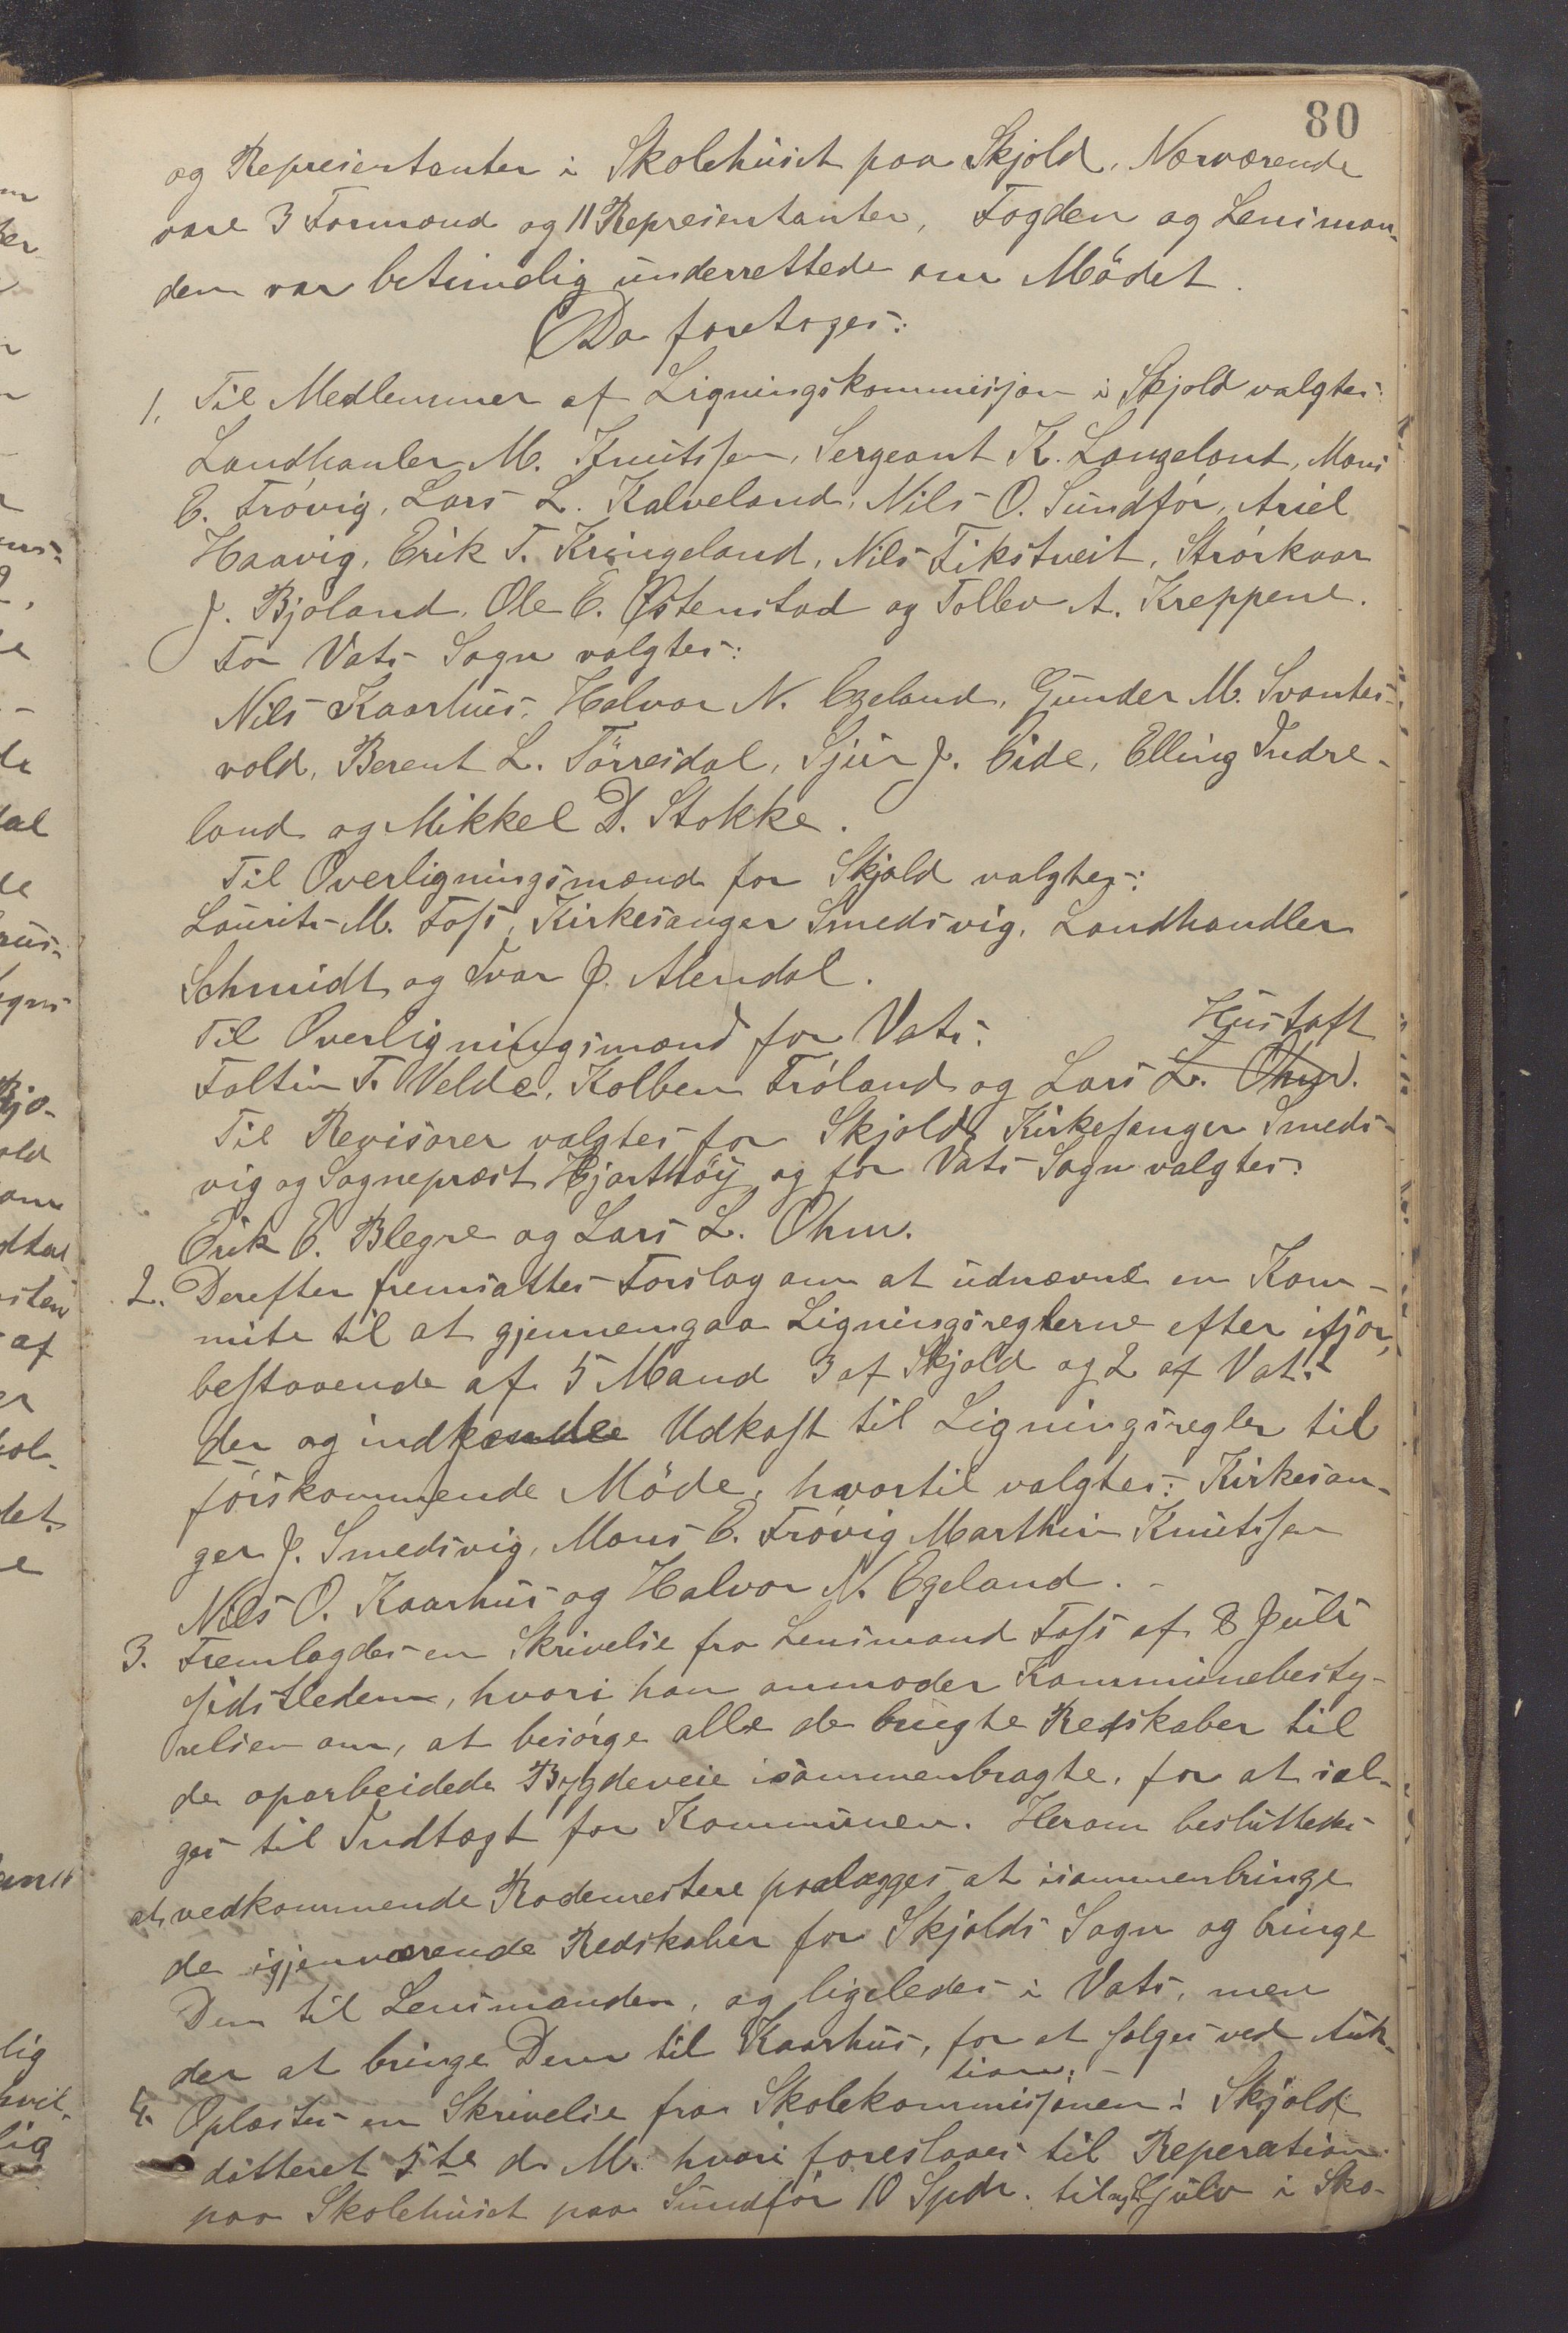 80
og Repræsentanter i Skolehuset paa Skjold. Nærværende
vare 3 Formænd og 11 Repræsentanter, Fogden og Lensman-
den var betimelig underrettede om Mödet.
Da foretoges:
1. Til Medlemmer af Ligningskommisjon i Skjold valgtes:
Landhanler M. Knutssen, Sergeant K. Langeland, Mons
E. Frövig, Lars L. Kalveland, Nils O. Sundför, Ariel
Haavig, Erik T. Kringeland, Nils Fikstveit, Störkaar
J. Bjoland, Ole E. Østenstad og Tollev A. Kreppene.
For Vats Sogn valgtes:
Nils Kaarhus, Halvor N. Egeland, Gunder M. Svantes-
vold, Berent L. Törresdal, Sjur J. Eide, Elling Indre-
land og Mikkel D. Stokke.
Til Overligningsmænd for Skjold valgtes:
Laurits M. Foss, Kirkesanger Smedsvig, Landhandler
Schmidt og Ivar J. Alendal.
Til Overligningsmænd for Vats: Hustoft
Foltin T. Velde, Kolben Fröland og Lars L. Ohm.
Til Revisorer valgtes for Skjold, Kirkesanger Smeds-
vig og Sognepræst Hjorthöÿ og for Vats Sogn valgtes:
Erik E. Blegre og Lars L. Ohm.
2. Derefter fremsattes Forslag om at udnævne en Kom-
mite til at gjennemgaa Ligningsreglerne efter ifjor,
bestaaende af 5 Mand 3 af Skjold og 2 af Vats
der og indsender Udkast til Ligningsregler til
förskommende Möde, hvortil valgtes: Kirkesan-
ger J. Smedsvig, Mons E. Frövig Marthin Knutssen
Nils O. Kaarhus og Halvor N. Egeland.
3. Fremlagdes en Skrivelse fra Lensmand Foss af 8 Juli
sidstleden, hvori han anmoder Kommunebesty-
relsen om, at besörge alle de brugte Redskaber til
de oparbeidede Bygdeveie isammenbragte, for at sæl-
ges til Indtægt for Kommunen. Herom besluttedes
at vedkommende Rodemestere paalægges at isammenbringe
de igjenværende Redskaber for Skjolds Sogn og bringe
Dem til Lensmanden, og ligeledes i Vats, men
der at bringe Dem til Kaarhus, for at sælges ved Auk-
tion.
4. Oplæstes en Skrivelse fra Skolekommisjonen i Skjold
datteret 5te d. M. hvori foreslaaes til Reperation
paa Skolehuset paa Sundför 10 Spdr. til nyt Gulv i Sko-